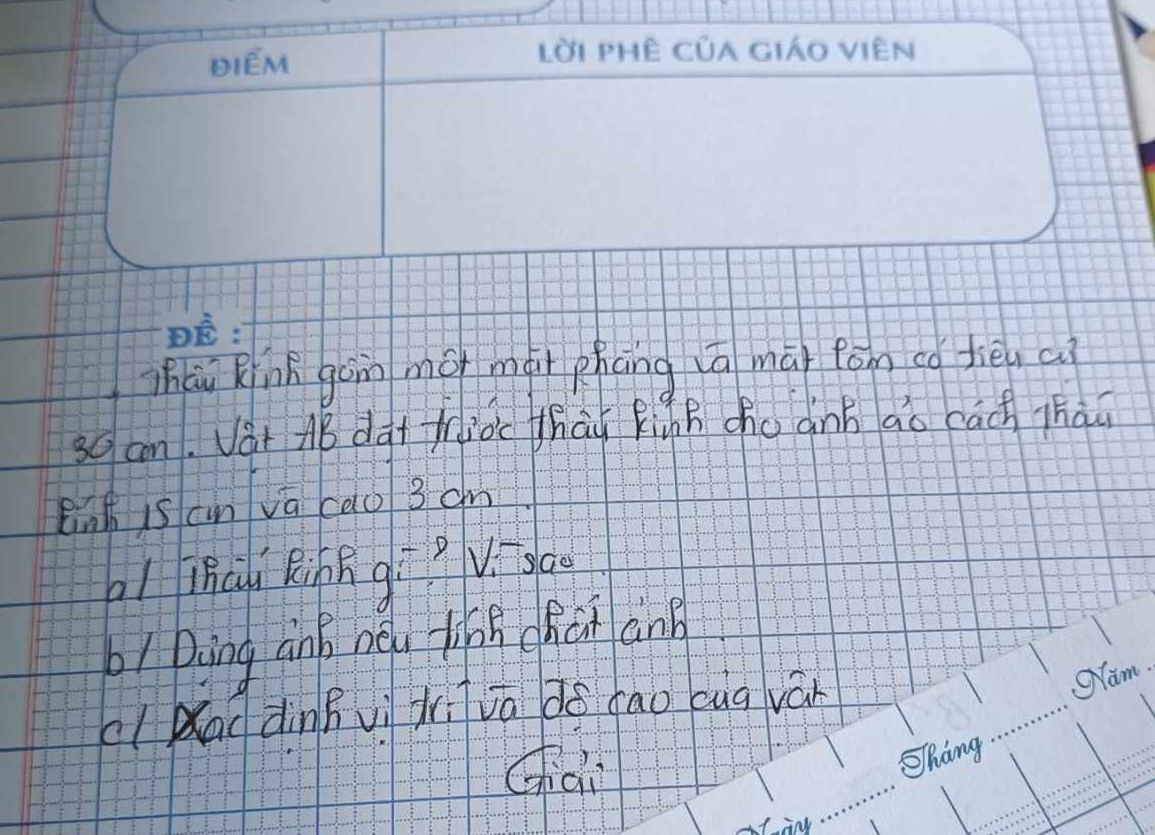 ĐIỂM
LỜI PHÊ CỦA GIÁO VIÊN
ĐỀ :
Thấu kính gồm một mặt phẳng và mặt lõm có tiêu cự
30 cm. Vật AB đặt trước thấu kính cho ảnh ảo cách thấu
kính 15 cm và cao 3 cm.
a/ Thấu kính gì? Vì sao
b/ Dựng ảnh nêu tính chất ảnh
c/ Xác định vị trí và độ cao của vật
Giải
Ngày ........... Tháng ........... Năm